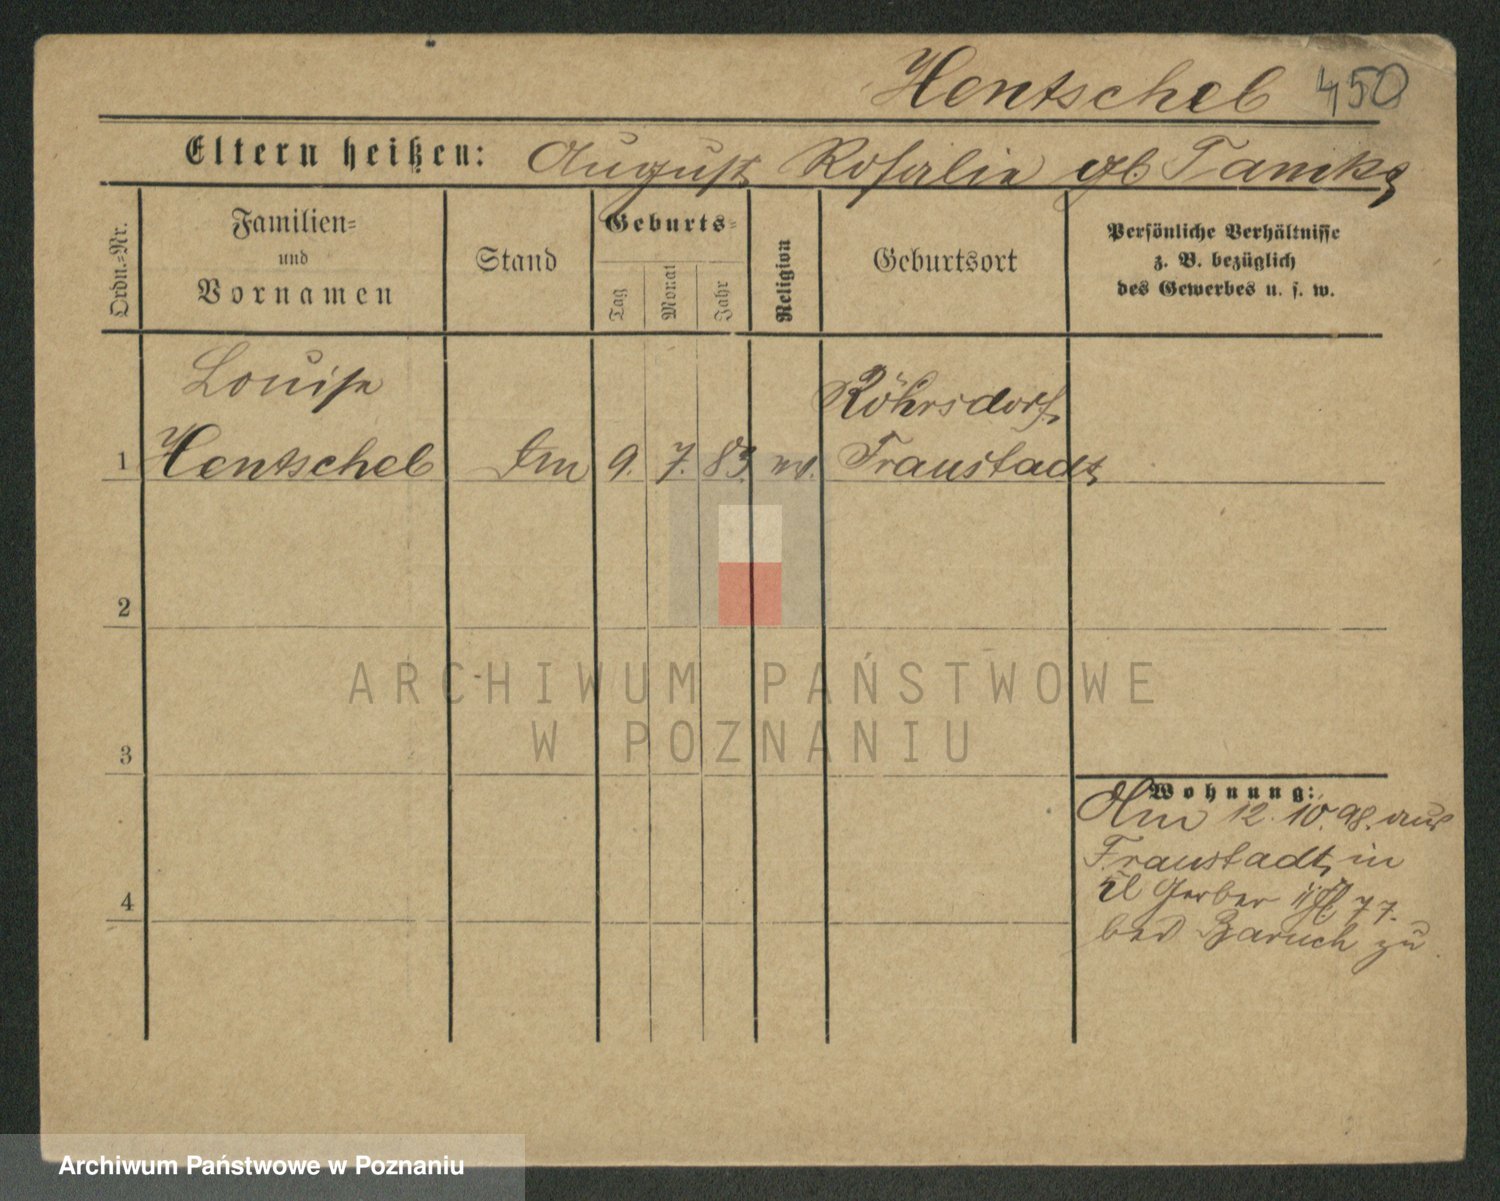 Hentschel 450
Eltern heißen: August Rosalie gb
Ordn.-Nr.
Familien-
und
Vornamen
Stand
Geburts-
Tag
Monat
Jahr
Religion
Geburtsort
Persönliche Verhältnisse
z. B. bezüglich
des Gewerbes u. s. w.
Louise
Röhrsdorf
1 Hentschel 9. 7. 83. ev. Fraustadt
2
ARCHIWUM PAŃSTWOWE
W POZNANIU
3
Wohnung:
12. 10. 98. aus
Fraustadt in
4
Kl Gerber 77.
bei Baruch zu
Archiwum Państwowe w Poznaniu